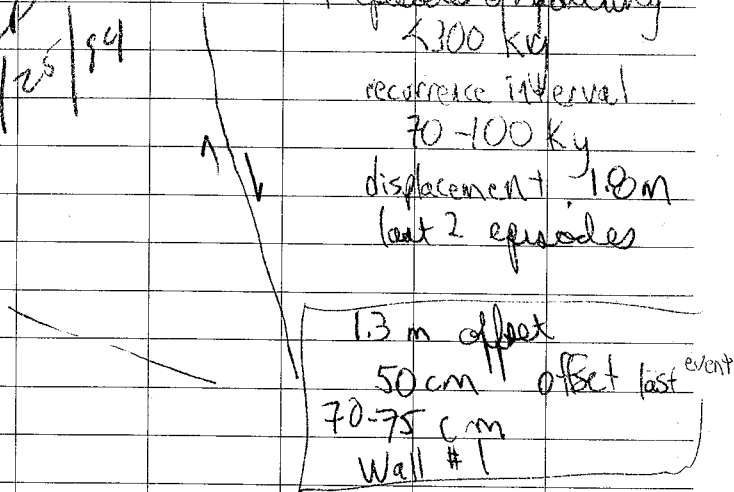 episodes of faulting
<300 Ky
/25/94
recurrence interval
70-100 Ky
displacement 1.8m
last 2 episodes
1.3 m offset
50 cm offset last event
70-75 cm
Wall #1